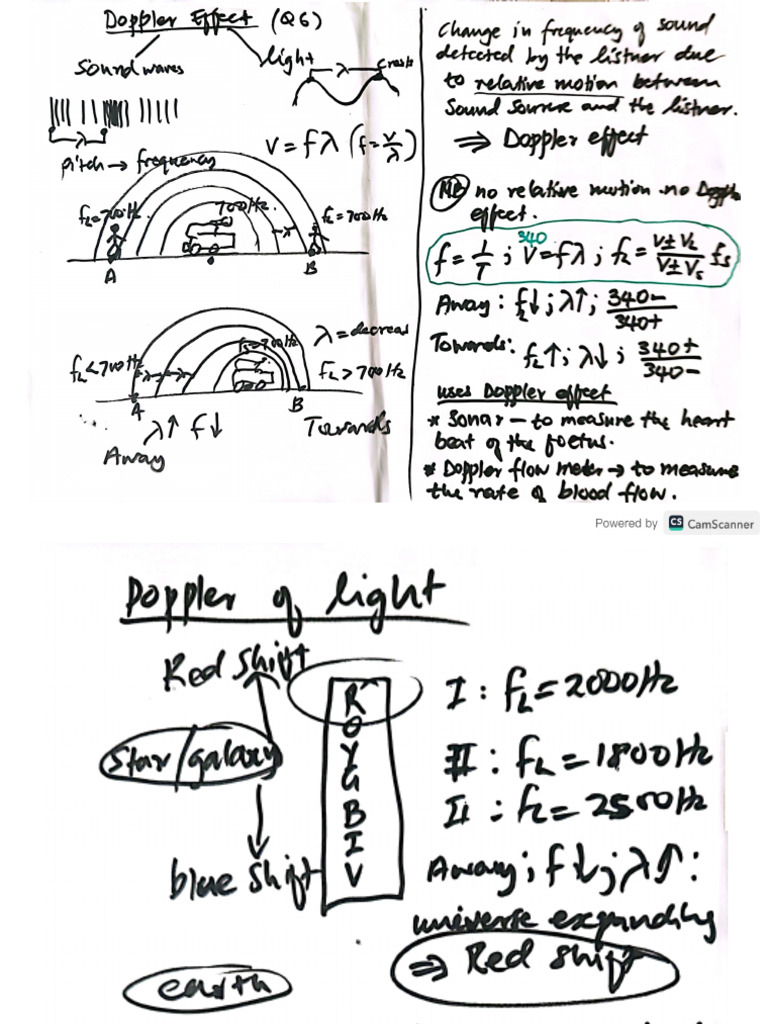 Doppler Effect (Q6)
Sound waves
light
λ
crests
V = fλ (f = V/λ)
pitch → frequency
fL = 700Hz
700Hz
fL = 700Hz
λ
A
B
fs = 700Hz
λ = decreas
fL < 700Hz
fL > 700Hz
A
B
λ↑ f↓
Towards
Away
Change in frequency of sound
detected by the listner due
to relative motion between
Sound Source and the listner.
⇒ Doppler effect
NB no relative motion no Doppler
effect.
340
f = 1/T ; V = fλ ; fL = V±VL/V±Vs fs
Away : fL↓ ; λ↑ ; 340−/340+
Towards: fL↑ ; λ↓ ; 340+/340−
uses Doppler effect
* Sonar – to measure the heart
beat of the foetus.
* Doppler flow meter → to measure
the rate of blood flow.
Powered by CS CamScanner
Doppler of light
Red Shift
Star/galaxy
blue shift
earth
R
O
Y
G
B
I
V
I : fL = 2000Hz
II : fL = 1800Hz
II : fL = 2500Hz
Away ; f↓ ; λ↑ :
universe expanding
⇒ Red shift